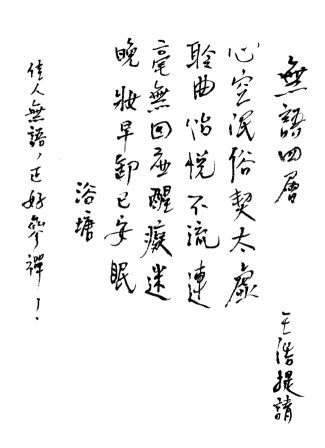 無語四層
心空泯俗契太虛
聆曲怡悅不流連
毫無回應醒癡迷
晚妝早卸已安眠
浴塘
佳人無語，正好參禪！
王浩提請